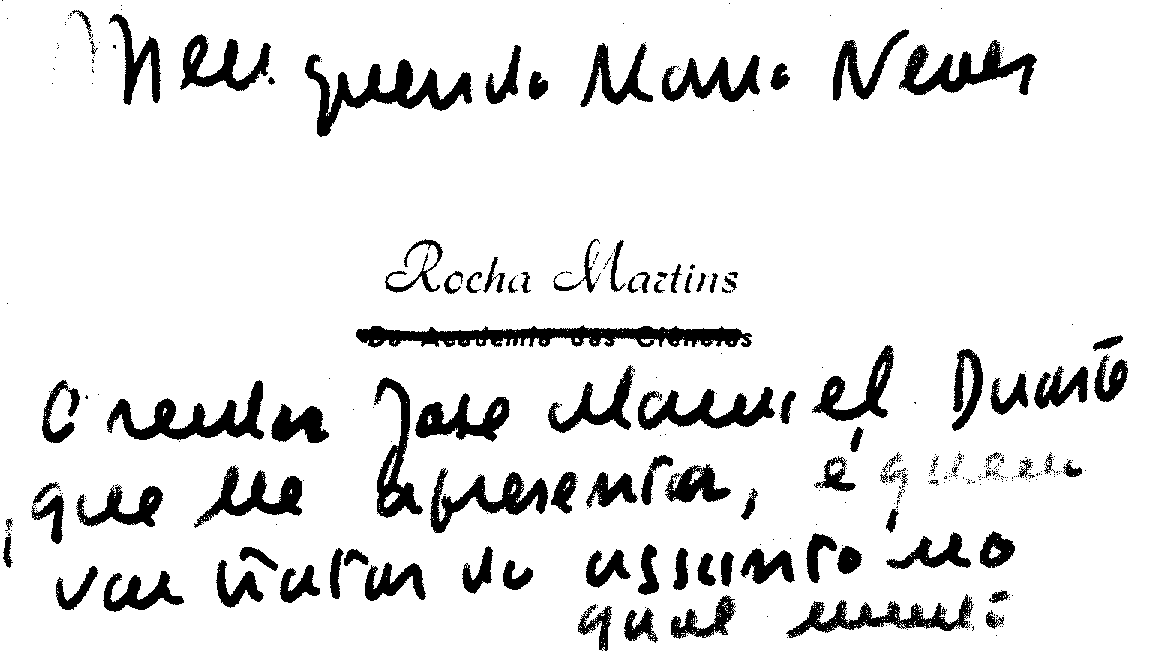 Meu querido Mario Neves
Rocha Martins
Da Academia das Ciências
O José Manuel Duarte
que lhe apresenta, é quem
vai tratar do assunto no
qual